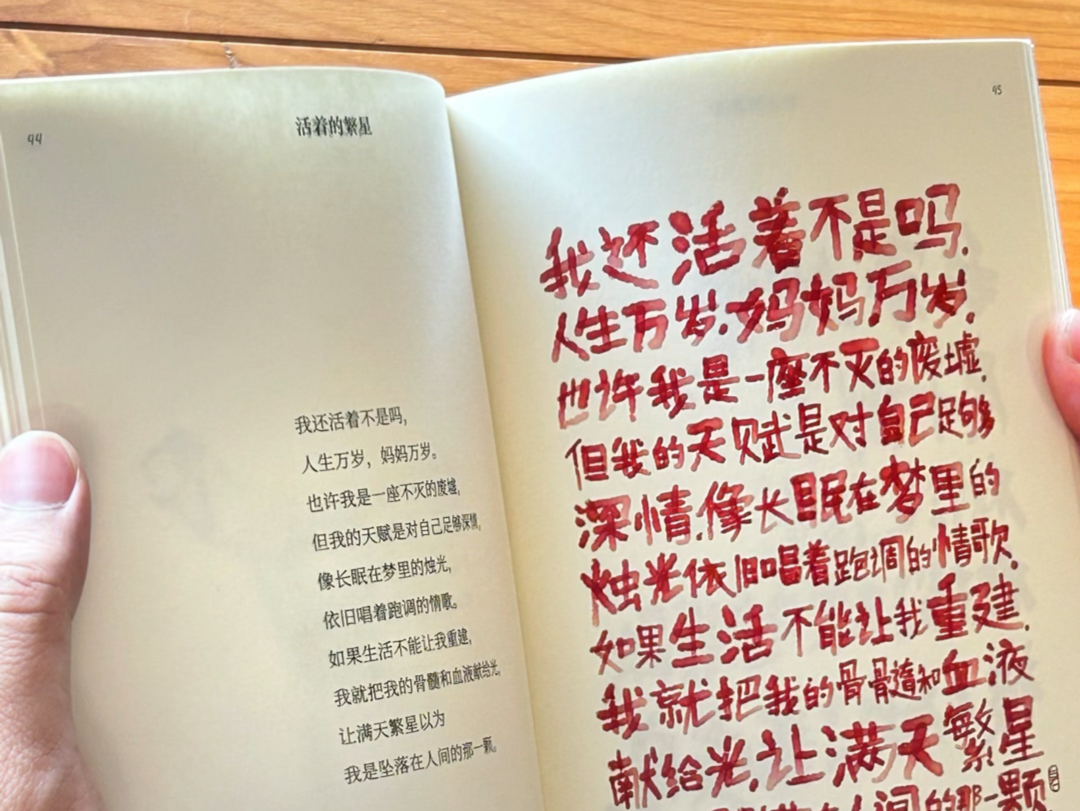 44
活着的繁星
我还活着不是吗，
人生万岁，妈妈万岁。
也许我是一座不灭的废墟，
但我的天赋是对自己足够深情，
像长眠在梦里的烛光，
依旧唱着跑调的情歌。
如果生活不能让我重建，
我就把我的骨髓和血液献给光，
让满天繁星以为
我是坠落在人间的那一颗。
95
我还活着不是吗，
人生万岁，妈妈万岁，
也许我是一座不灭的废墟，
但我的天赋是对自己足够
深情，像长眠在梦里的
烛光依旧唱着跑调的情歌，
如果生活不能让我重建，
我就把我的骨骨髓和血液
献给光，让满天繁星
人间的那一颗